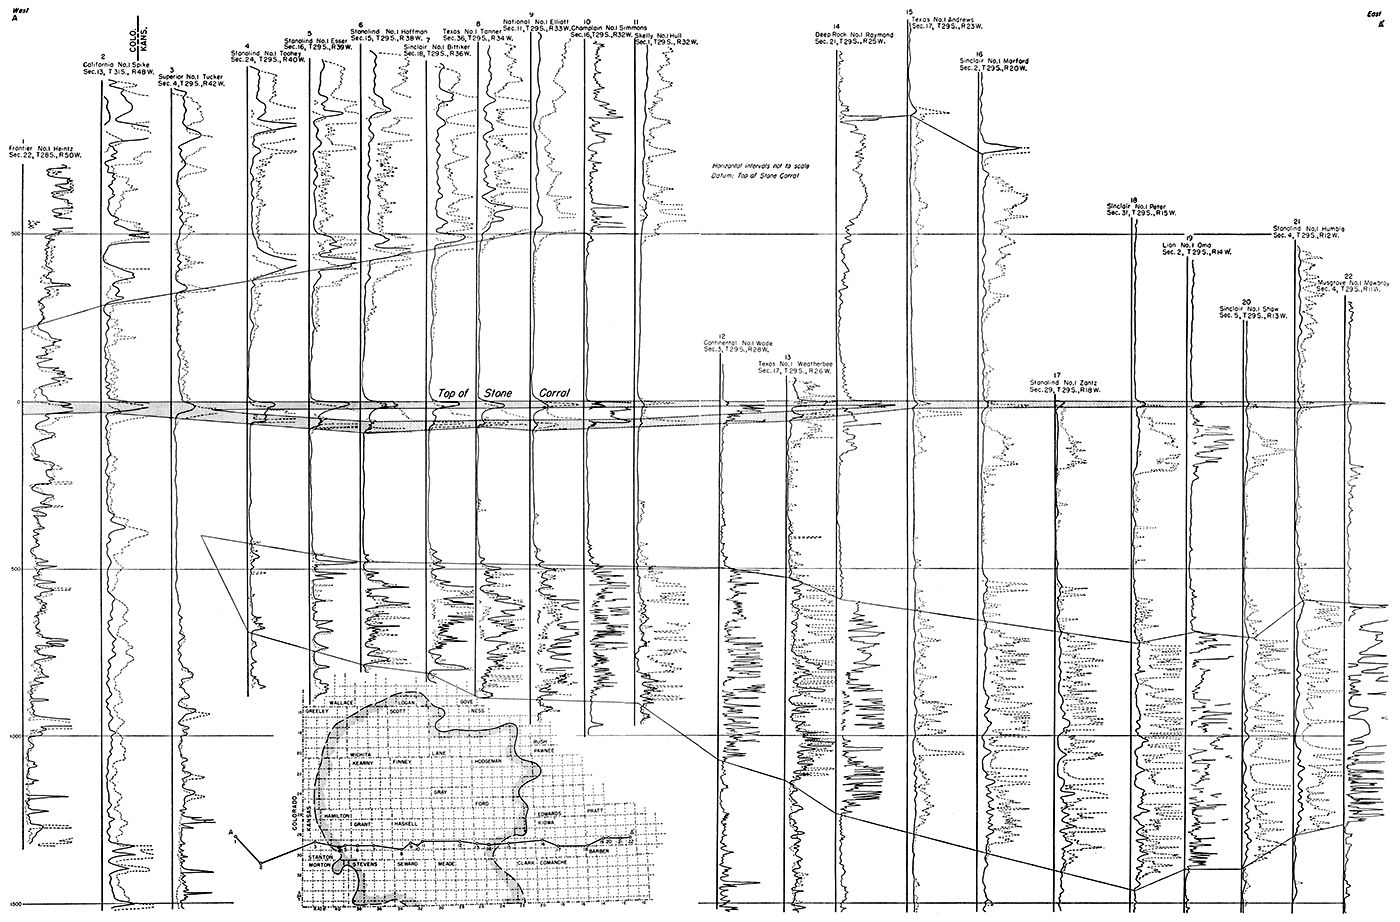 West
A
East
A'
COLO.
KANS.
1
Frontier No.1 Heintz
Sec.22, T28S., R50W.
2
California No.1 Spike
Sec.13, T31S., R48W.
3
Superior No.1 Tucker
Sec.4, T29S., R42W.
4
Stanolind No.1 Toohey
Sec.24, T29S., R40W.
5
Stanolind No.1 Esser
Sec.16, T29S., R39W.
6
Stanolind No.1 Hoffman
Sec.15, T29S., R38W.
7
Sinclair No.1 Bittiker
Sec.18, T29S., R36W.
8
Texas No.1 Tanner
Sec.36, T29S., R34W.
9
National No.1 Elliott
Sec.11, T29S., R33W.
10
Champlain No.1 Simmons
Sec.16, T29S., R32W.
11
Skelly No.1 Hull
Sec.1, T29S., R32W.
12
Continental No.1 Wade
Sec.3, T29S., R28W.
13
Texas No.1 Weatherbee
Sec.17, T29S., R26W.
14
Deep Rock No.1 Raymond
Sec.21, T29S., R25W.
15
Texas No.1 Andrews
Sec.17, T29S., R23W.
16
Sinclair No.1 Morford
Sec.2, T29S., R20W.
17
Stanolind No.1 Zantz
Sec.29, T29S., R18W.
18
Sinclair No.1 Peter
Sec.31, T29S., R15W.
19
Lion No.1 Oma
Sec.2, T29S., R14W.
20
Sinclair No.1 Shaw
Sec.5, T29S., R13W.
21
Stanolind No.1 Humble
Sec.4, T29S., R12W.
22
Musgrove No.1 Mowbray
Sec.4, T29S., R11W.
Horizontal intervals not to scale
Datum: Top of Stone Corral
500
0
Top of Stone Corral
500
1000
1500
WALLACE
LOGAN
GOVE
GREELEY
SCOTT
NESS
RUSH
PAWNEE
WICHITA
LANE
KEARNY
FINNEY
HODGEMAN
GRAY
FORD
COLORADO
KANSAS
HAMILTON
GRANT
HASKELL
EDWARDS
KIOWA
PRATT
STANTON
MORTON
STEVENS
SEWARD
MEADE
CLARK
COMANCHE
BARBER
A